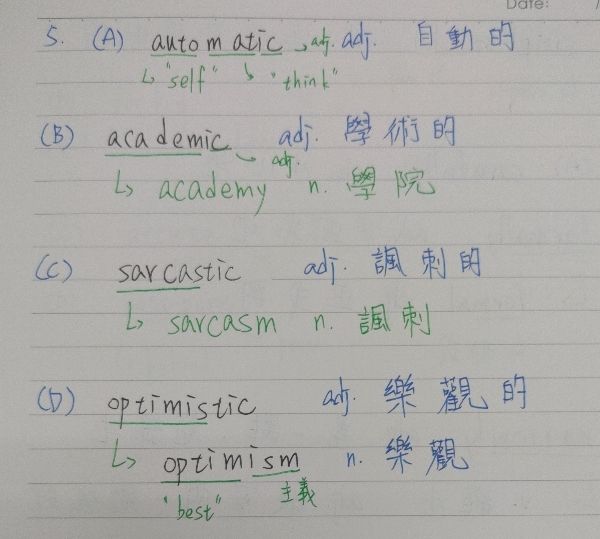 Date:
5. (A) automatic adj. adj. 自動的
"self" "think"
(B) academic adj. 學術的
adj.
academy n. 學院
(C) sarcastic adj. 諷刺的
sarcasm n. 諷刺
(D) optimistic adj. 樂觀的
optimism n. 樂觀
"best" 主義